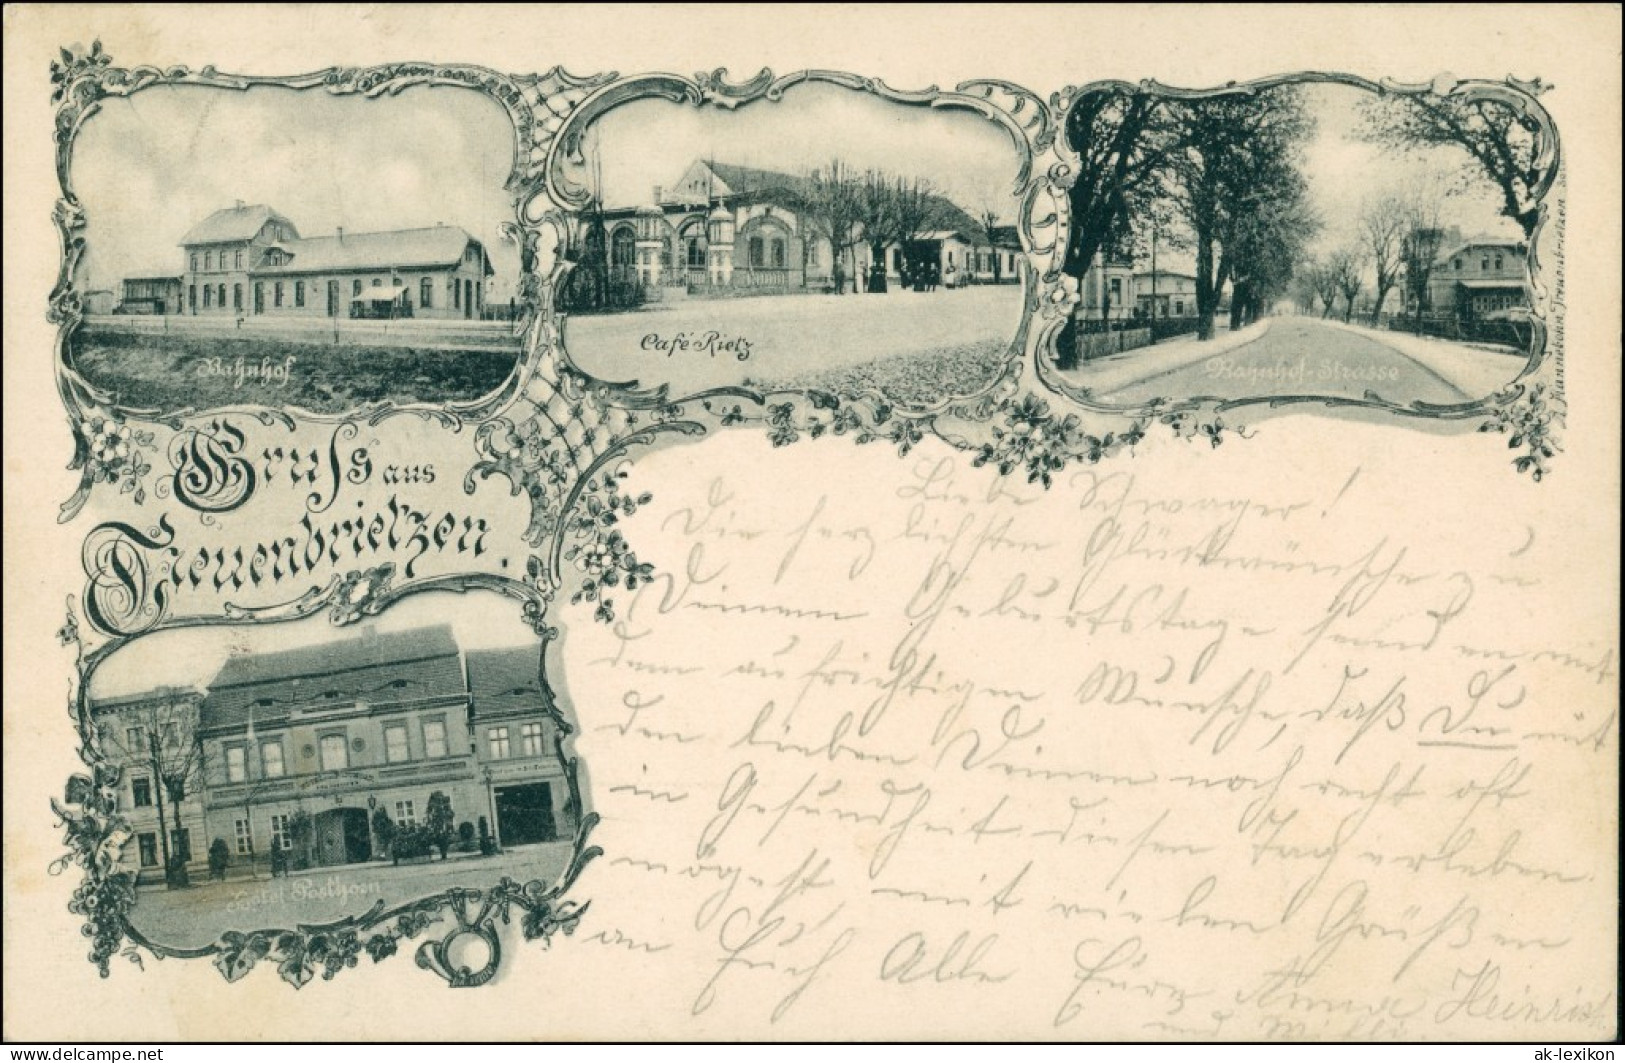 Bahnhof
Café Rietz
Bahnhof-Strasse
Gruss aus
Treuenbrietzen.
Hotel Posthorn
Liebe Schwager!
Die herzlichsten Glückwünsche zu
Deinem Geburtstage senden mit
dem aufrichtigen Wunsche, daß Du mit
den lieben Deinen noch recht oft
in Gesundheit diesen Tag erleben
mögest, mit vielen Grüßen
an Euch Alle Anna Heinrich
und Willi
delcampe.net
ak-lexikon